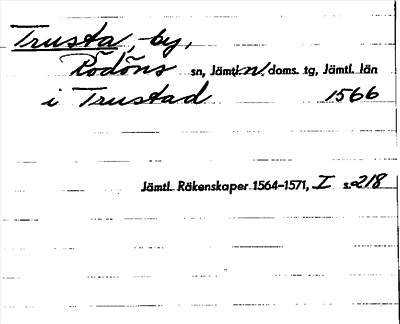 Trusta, by,
Rödöns sn, Jämtl. n. doms. tg, Jämtl. län
i Trustad 1566
Jämtl. Räkenskaper 1564-1571, I s. 218